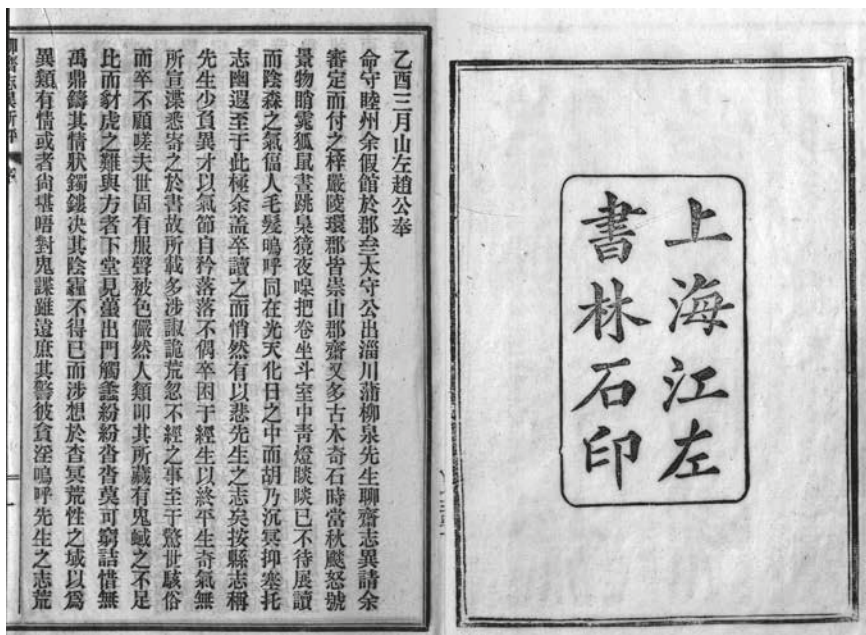 上海江左
書林石印
乙酉三月山左趙公奉
命守睦州余假館於郡亝太守公出淄川蒲柳泉先生聊齋志異請余
審定而付之梓嚴陵環郡皆崇山郡齋又多古木奇石時當秋飈怒號
景物睄窱狐鼠晝跳梟獍夜嘷把卷坐斗室中青燈睒睒已不待展讀
而陰森之氣偪人毛髮嗚呼同在光天化日之中而胡乃沉冥抑塞托
志幽遐至于此極余盖卒讀之而悄然有以悲先生之志矣按縣志稱
先生少負異才以氣節自矜落落不偶卒困于經生以終平生奇氣無
所宣渫悉寄之於書故所載多涉諔詭荒忽不經之事至于驚世駭俗
而卒不顧嗟夫世固有服聲被色儼然人類叩其所藏有鬼蜮之不足
比而豺虎之難與方者下堂見蠆出門觸蠭紛紛沓沓莫可窮詰惜無
禹鼎鑄其情狀鐲鏤决其陰霾不得已而涉想於杳冥荒性之域以爲
異類有情或者尙堪晤對鬼謀雖遠庶其警彼貪淫嗚呼先生之志荒